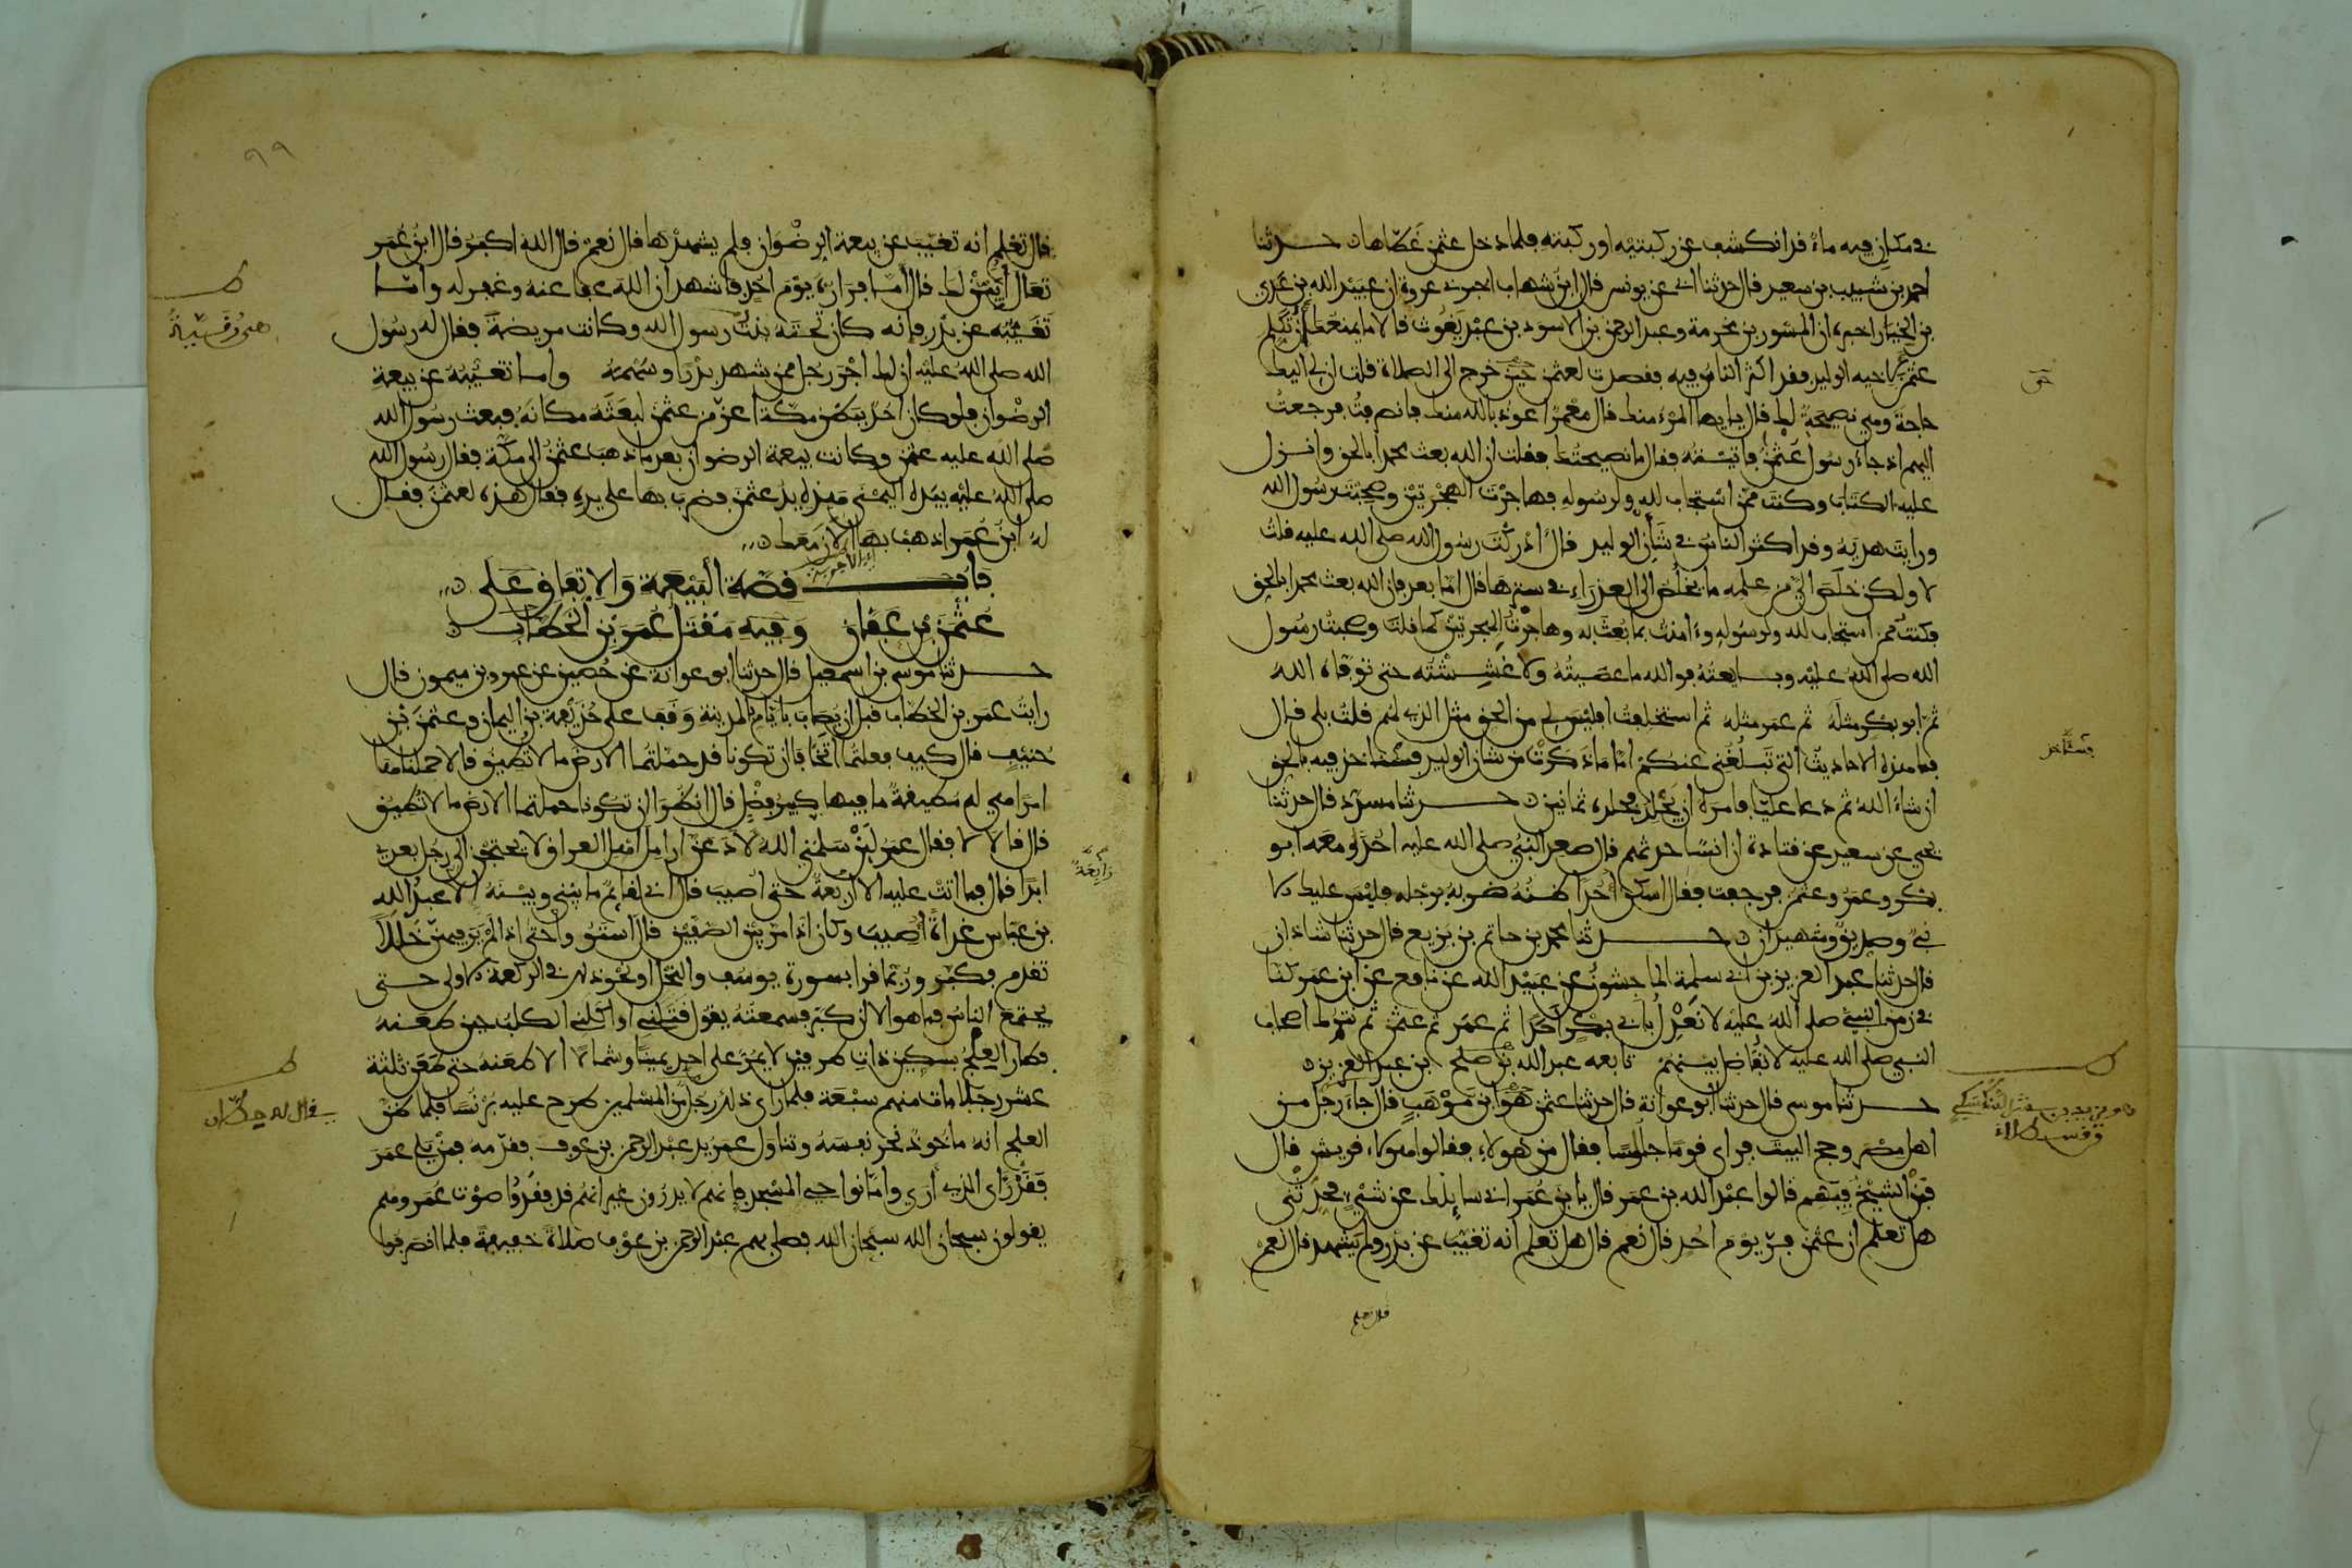 في مكان فيه ماء قد انكشف عن ركبتيه او ركبته فلما دخل عثمن غطاها حدثنا
احمد بن شبيب بن سعيد قال حدثنا ابي عن يونس قال ابن شهاب اخبرني عروة ان عبيد الله بن عدي
بن الخيار اخبره ان المسور بن مخرمة وعبد الرحمن بن الاسود بن عبد يغوث قالا ما يمنعك ان تكلم
عثمن لاخيه الوليد فقد اكثر الناس فيه فقصدت لعثمن حين خرج الى الصلاة قلت ان لي اليك
حاجة وهي نصيحة لك قال يا يها المرء منك قال معمر اعوذ بالله منك فانصرفت فرجعت
اليهم اذ جاء رسول عثمن فاتيته فقال ما نصيحتك فقلت ان الله بعث محمدا بالحق وانزل
عليه الكتاب وكنت ممن استجاب لله ولرسوله فهاجرت الهجرتين وصحبت رسول الله
ورايت هديه وقد اكثر الناس في شأن الوليد قال ادركت رسول الله صلى الله عليه قلت
لا ولكن خلص الي من علمه ما يخلص الى العذراء في سترها قال اما بعد فان الله بعث محمدا بالحق
فكنت ممن استجاب لله ولرسوله وءامنت بما بعث به وهاجرت الهجرتين كما قلت وصحبت رسول
الله صلى الله عليه وبايعته فوالله ما عصيته ولا غششته حتى توفاه الله
ثم ابو بكر مثله ثم عمر مثله ثم استخلفت افليس لي من الحق مثل الذي لهم قلت بلى قال
فما هذه الاحاديث التي تبلغني عنكم اما ما ذكرت من شان الوليد فسناخذ فيه بالحق
ان شاء الله ثم دعا عليا فامره ان يجلد فجلده ثمانين حدثنا مسدد قال حدثنا
يحيى عن سعيد عن قتادة ان انسا حدثهم قال صعد النبي صلى الله عليه احدا ومعه ابو
بكر وعمر وعثمن فرجفت فقال اسكن احد اظنه ضربه برجله فليس عليك الا
نبي وصديق وشهيدان حدثنا محمد بن حاتم بن بزيع قال حدثنا شاذان
قال حدثنا عبد العزيز بن ابي سلمة الماجشون عن عبيد الله عن نافع عن ابن عمر كنا
في زمن النبي صلى الله عليه لا نعدل بابي بكر احدا ثم عمر ثم عثمن ثم نترك اصحاب
النبي صلى الله عليه لا نفاضل بينهم تابعه عبد الله بن صلح بن عبد العزيز
حدثنا موسى قال حدثنا ابو عوانة قال حدثنا عثمن هو ابن موهب قال جاء رجل من
اهل مصر وحج البيت فراى قوما جلوسا فقال من هولاء فقالوا هولاء قريش قال
فمن الشيخ فيهم قالوا عبد الله بن عمر قال يا بن عمر اني سايلك عن شيء فحدثني
هل تعلم ان عثمن فر يوم احد قال نعم قال هل تعلم انه تغيب عن بدر ولم يشهد قال نعم
قال تعلم
حق
فسناخذ
٩٩
قال تعلم انه تغيب عن بيعة الرضوان فلم يشهدها قال نعم قال الله اكبر قال ابن عمر
تعال ابين لك قال اما فراره يوم احد فاشهد ان الله عفا عنه وغفر له واما
تغيبه عن بدر فانه كان تحته بنت رسول الله وكانت مريضة فقال له رسول
الله صلى الله عليه ان لك اجر رجل ممن شهد بدرا وسهمه واما تغيبه عن بيعة
الرضوان فلو كان احد ببطن مكة اعز من عثمن لبعثه مكانه فبعث رسول الله
صلى الله عليه عثمن وكانت بيعة الرضوان بعد ما ذهب عثمن الى مكة فقال رسول الله
صلى الله عليه بيده اليمنى هذه يد عثمن فضرب بها على يده فقال هذه لعثمن فقال
له ابن عمر اذهب بها الان معك
باب قصة البيعة والاتفاق على
عثمن بن عفان وفيه مقتل عمر بن الخطاب
حدثنا موسى بن اسمعيل قال حدثنا ابو عوانة عن حصين عن عمرو بن ميمون قال
رايت عمر بن الخطاب قبل ان يصاب بايام بالمدينة وقف على حذيفة بن اليمان وعثمن بن
حنيف قال كيف فعلتما اتخافان تكونا قد حملتما الارض ما لا تطيق قالا حملناها
امرا هي له مطيقة ما فيها كبير فضل قال انظرا ان تكونا حملتما الارض ما لا تطيق
قال قالا لا فقال عمر لين سلمني الله لادعن ارامل اهل العراق لا يحتجن الى رجل بعدي
ابدا قال فما اتت عليه الا اربعة حتى اصيب قال اني لقايم ما بيني وبينه الا عبد الله
بن عباس غداة اصيب وكان اذا مر بين الصفين قال استووا حتى اذا لم ير فيهن خللا
تقدم فكبر وربما قرا بسورة يوسف والنحل او نحو ذلك في الركعة الاولى حتى
يجتمع الناس فما هو الا ان كبر فسمعته يقول قتلني او اكلني الكلب حين طعنه
فطار العلج بسكين ذات طرفين لا يمر على احد يمينا وشمالا الا طعنه حتى طعن ثلثة
عشر رجلا مات منهم سبعة فلما راى ذلك رجل من المسلمين طرح عليه برنسا فلما ظن
العلج انه ماخوذ نحر نفسه وتناول عمر يد عبد الرحمن بن عوف فقدمه فمن يلي عمر
فقد راى الذي ارى واما نواحي المسجد فانهم لا يدرون غير انهم قد فقدوا صوت عمر وهم
يقولون سبحان الله سبحان الله فصلى بهم عبد الرحمن بن عوف صلاة خفيفة فلما انصرفوا
رابعة
هي رقية